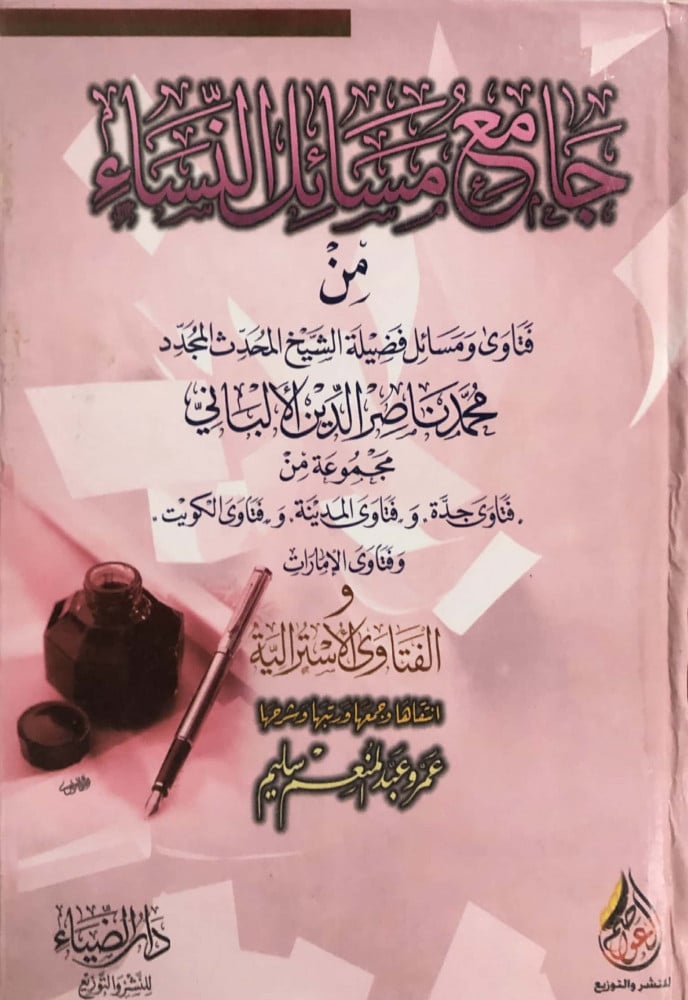 جَامِع مَسَائِل النِّسَاءِ
مِنْ
فَتَاوَىٰ وَمَسَائِل فَضِيلَة الشَّيْخ المُحَدِّث المُجَدِّد
مُحَمَّد نَاصِر الدِّين الأَلْبَانِيِّ
مَجْمُوعَة مِنْ
"فَتَاوَىٰ جدَّة" وَ "فَتَاوَىٰ المَدِينَة" وَ "فَتَاوَىٰ الكُوَيْت"
وَفَتَاوَىٰ الإِمَارَات
وَ
الفَتَاوَىٰ الأُسْتُرَالِيَّة
انتقاها وجمعها ورتبها وشرحها
عَمْرو عَبْد المُنْعِمْ سَلِيم
دَارُ الضِّيَاءِ
للنَّشْرِ وَالتَّوْزِيْعِ
للنشر والتوزيع